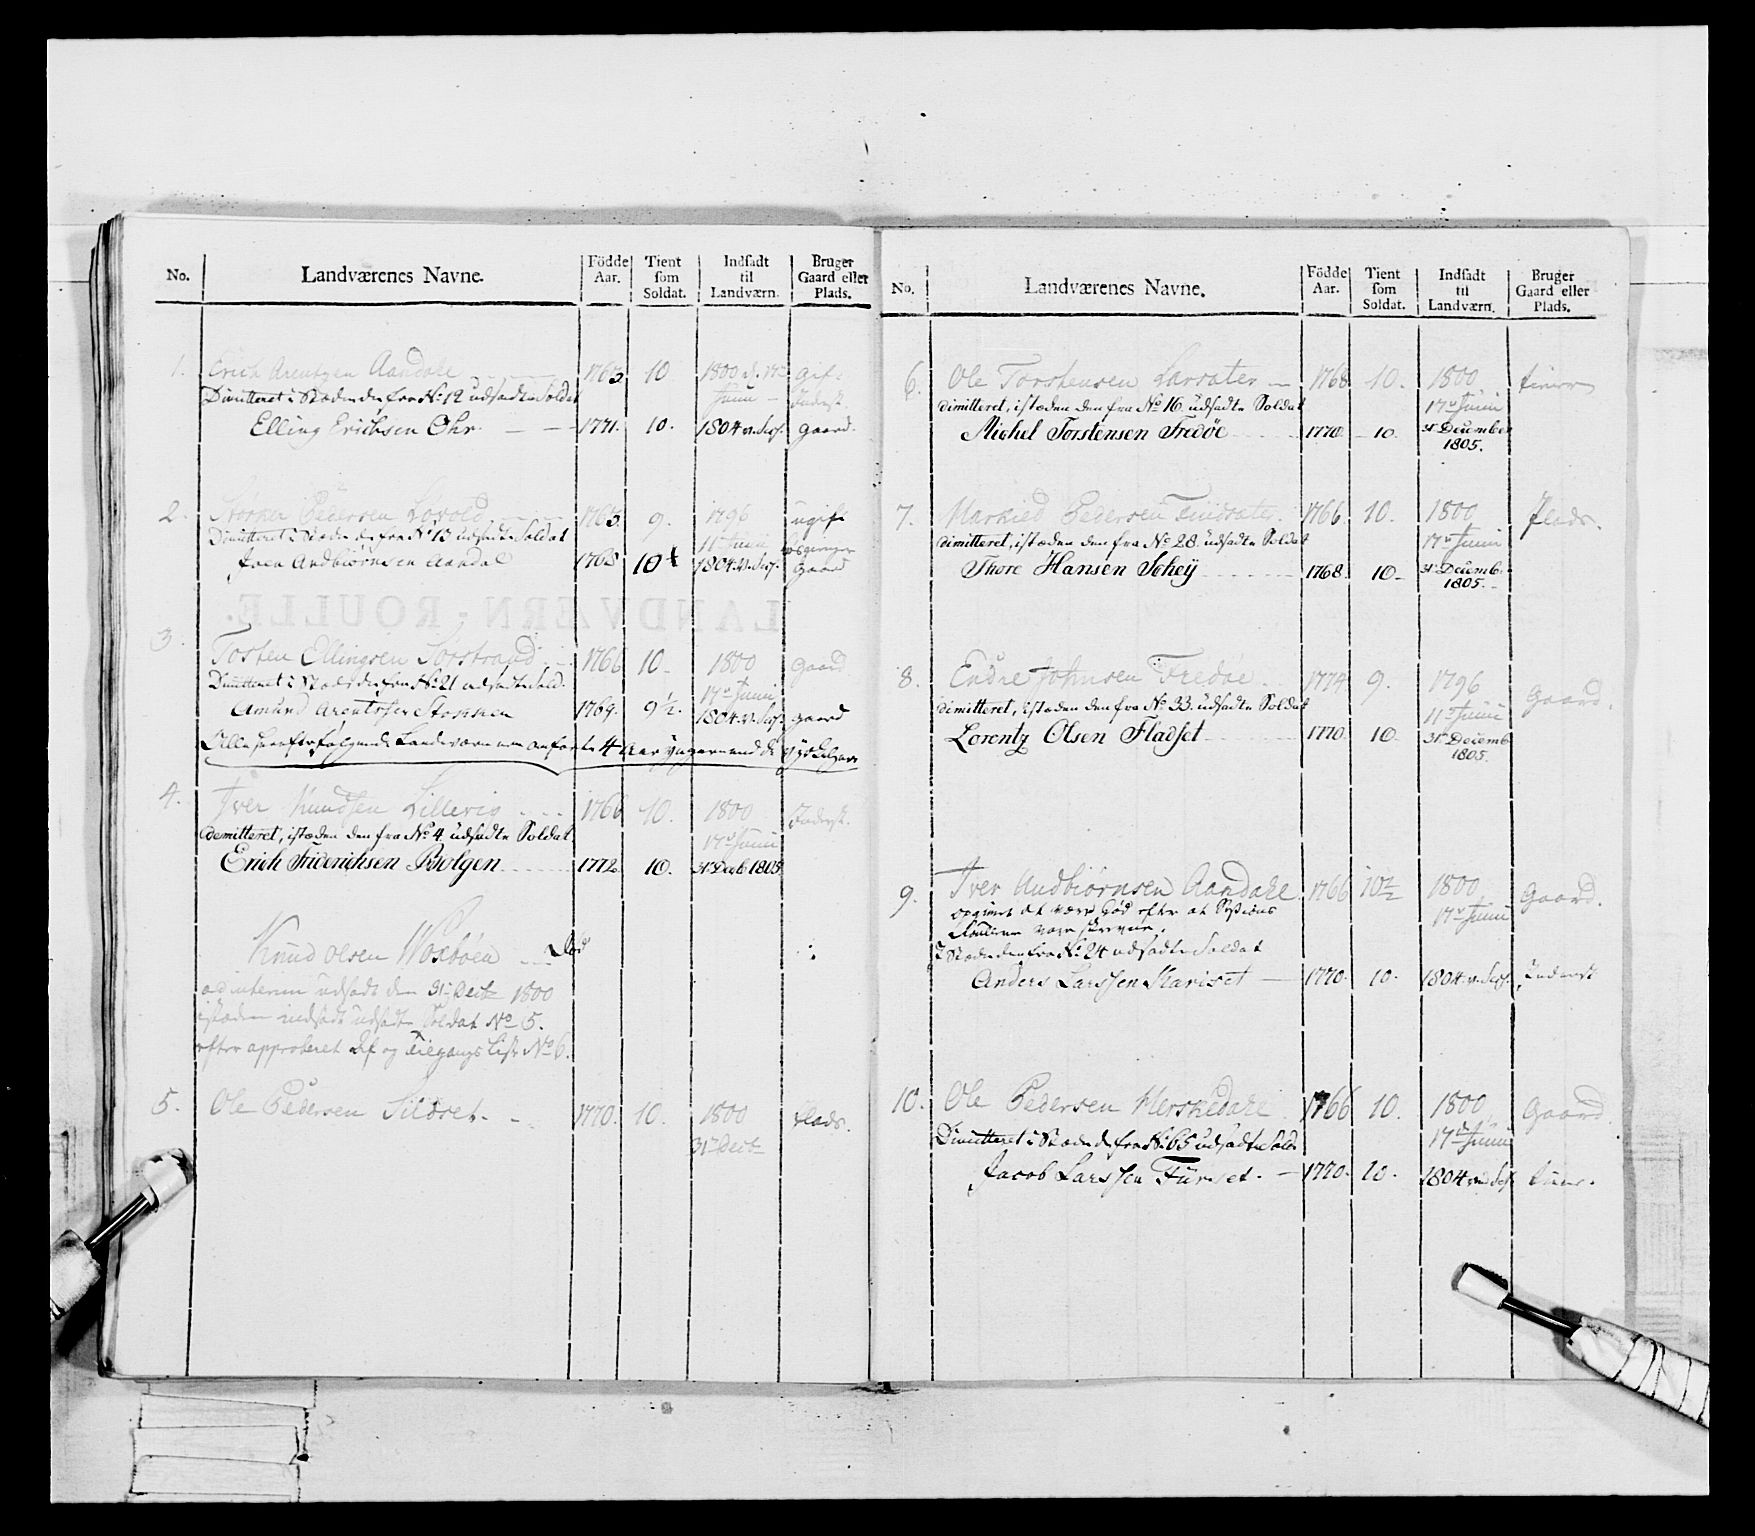 No.
Landværenes Navne.
Födde Aar.
Tient som Soldat.
Indsadt til Landværn.
Bruger Gaard eller Plads.
1. Erich Arentzen Aandahl 1763 10 1800 d. 17 Gif.
Dimitteret i Stæden den fra No 12 udsadte Soldat Junii
Elling Erichsen Ohr 1771. 10. 1804 v. Sess. Gaard.
2. Pedersen Lovold 1763 9. 1796 ugift
Dimitteret i Stæden de fra No 13 udsadte Soldat 11 Junii
Joen Andbiörnsen Aandal 1768 10 1804 v. Sess. Gaard
LANDVÆRN-ROULLE.
3. Tosten Ellingsen Sorstrand 1766 10 1800 Gaard
Dimitteret i Stæden den fra No 21 udsadte Sold. 17 Junii
Amund Arentsen Stokken 1769. 9½. 1804 v. Sess. gaard
4 Aar
4. Iver Knudsen Lillevig 1766 10. 1800 Inderst.
demitteret, istæden den fra No 4 udsadte Soldat 17 Junii
Erich Friderichsen Bolgen 1772 10. 31 Decb 1805
Knud Olsen Woxböen Död
ad interim udsadt den 31 Decb 1800
istæden indsadt udsadte Soldat No 5.
efter approberet Af og Tilgangs Liste No 6.
5. Ole Pedersen Sildset 1770. 10. 1800 Plads.
31 Decb
No.
Landværenes Navne.
Födde Aar.
Tient som Soldat.
Indsadt til Landværn.
Bruger Gaard eller Plads.
6. Ole Torstensen Larsæter 1768 10. 1800
dimitteret, istæden den fra No 16. udsadte Soldat 17 Junii
Michel Torstensen Fredöe 1770 10 31 December
1805.
7. Pedersen 1766. 10. 1800 Plads.
dimitteret, istæden den fra No 28. udsadte Soldat 17 Junii
Thore Hansen Sohey 1768. 10 31 Decemb.
1805.
8. Endre Johnsen Fredöe 1774 9. 1796 Gaard.
dimitteret, istæden den fra No. 33. udsadte Soldat 11 Junii
Lorentz Olsen Fladset 1770 10 31 Decemb
1805.
9. Iver Andbiörnsen Aandahl 1766 10½ 1800 Gaard.
at være Död efter at Sessions 17 Junii
Roullerne vare skrevne.
I Stæden den fra No 24 udsadte Soldat
Anders Larssen Hariset 1770. 10. 1804 v. Sess. Inderst
10. Ole Pedersen Merskedahl 1766 10. 1800 Gaard
Dimitteret i Stæden de fra No 65 udsadte Sold. 17 Junii
Jacob Larssen Furset. 1770. 10. 1804 ved Sess